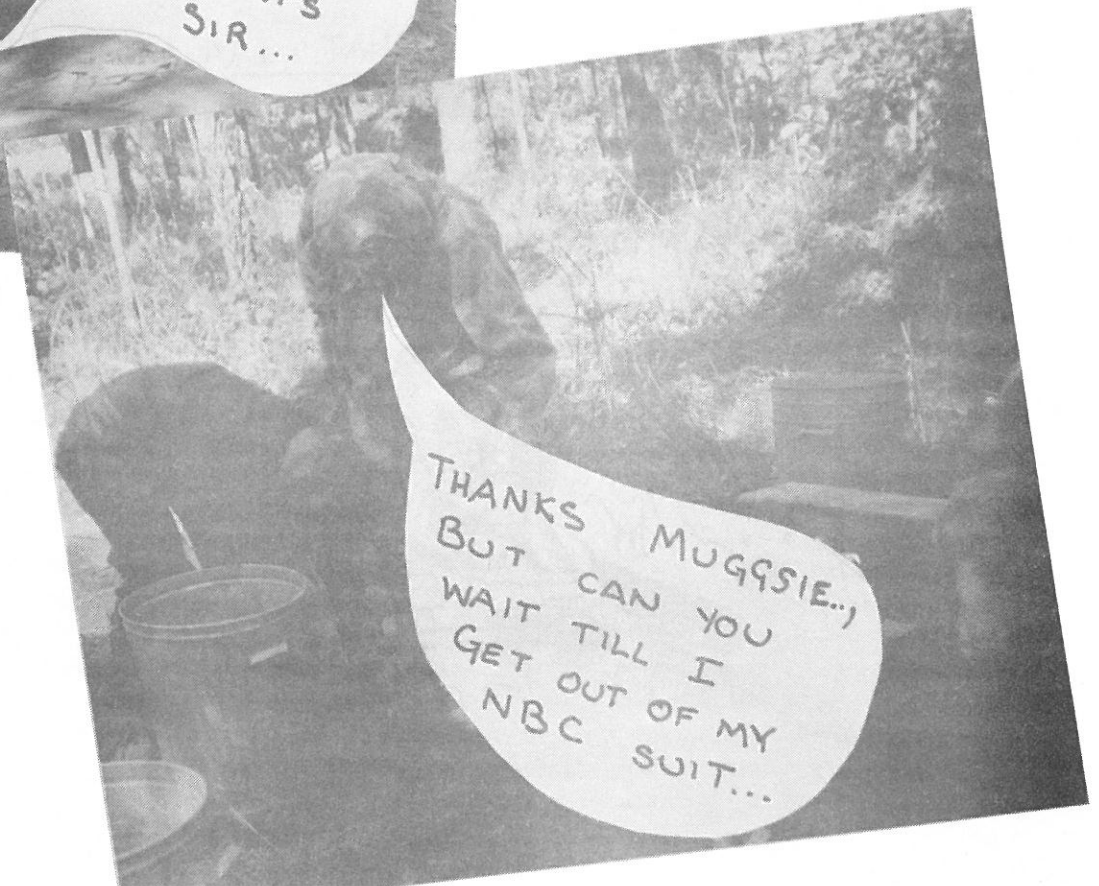 SIR...
THANKS MUGGSIE..,
BUT CAN YOU
WAIT TILL I
GET OUT OF MY
NBC SUIT...